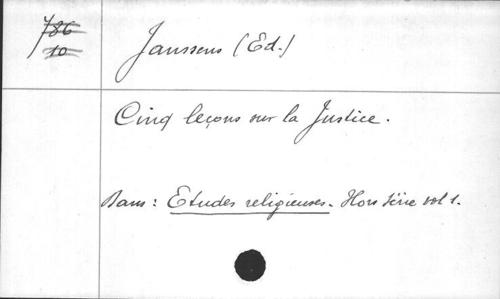 786
10
Janssens (Ed.)
Cinq leçons sur la Justice.
Dans : Etudes religieuses. Hors Série vol 1.